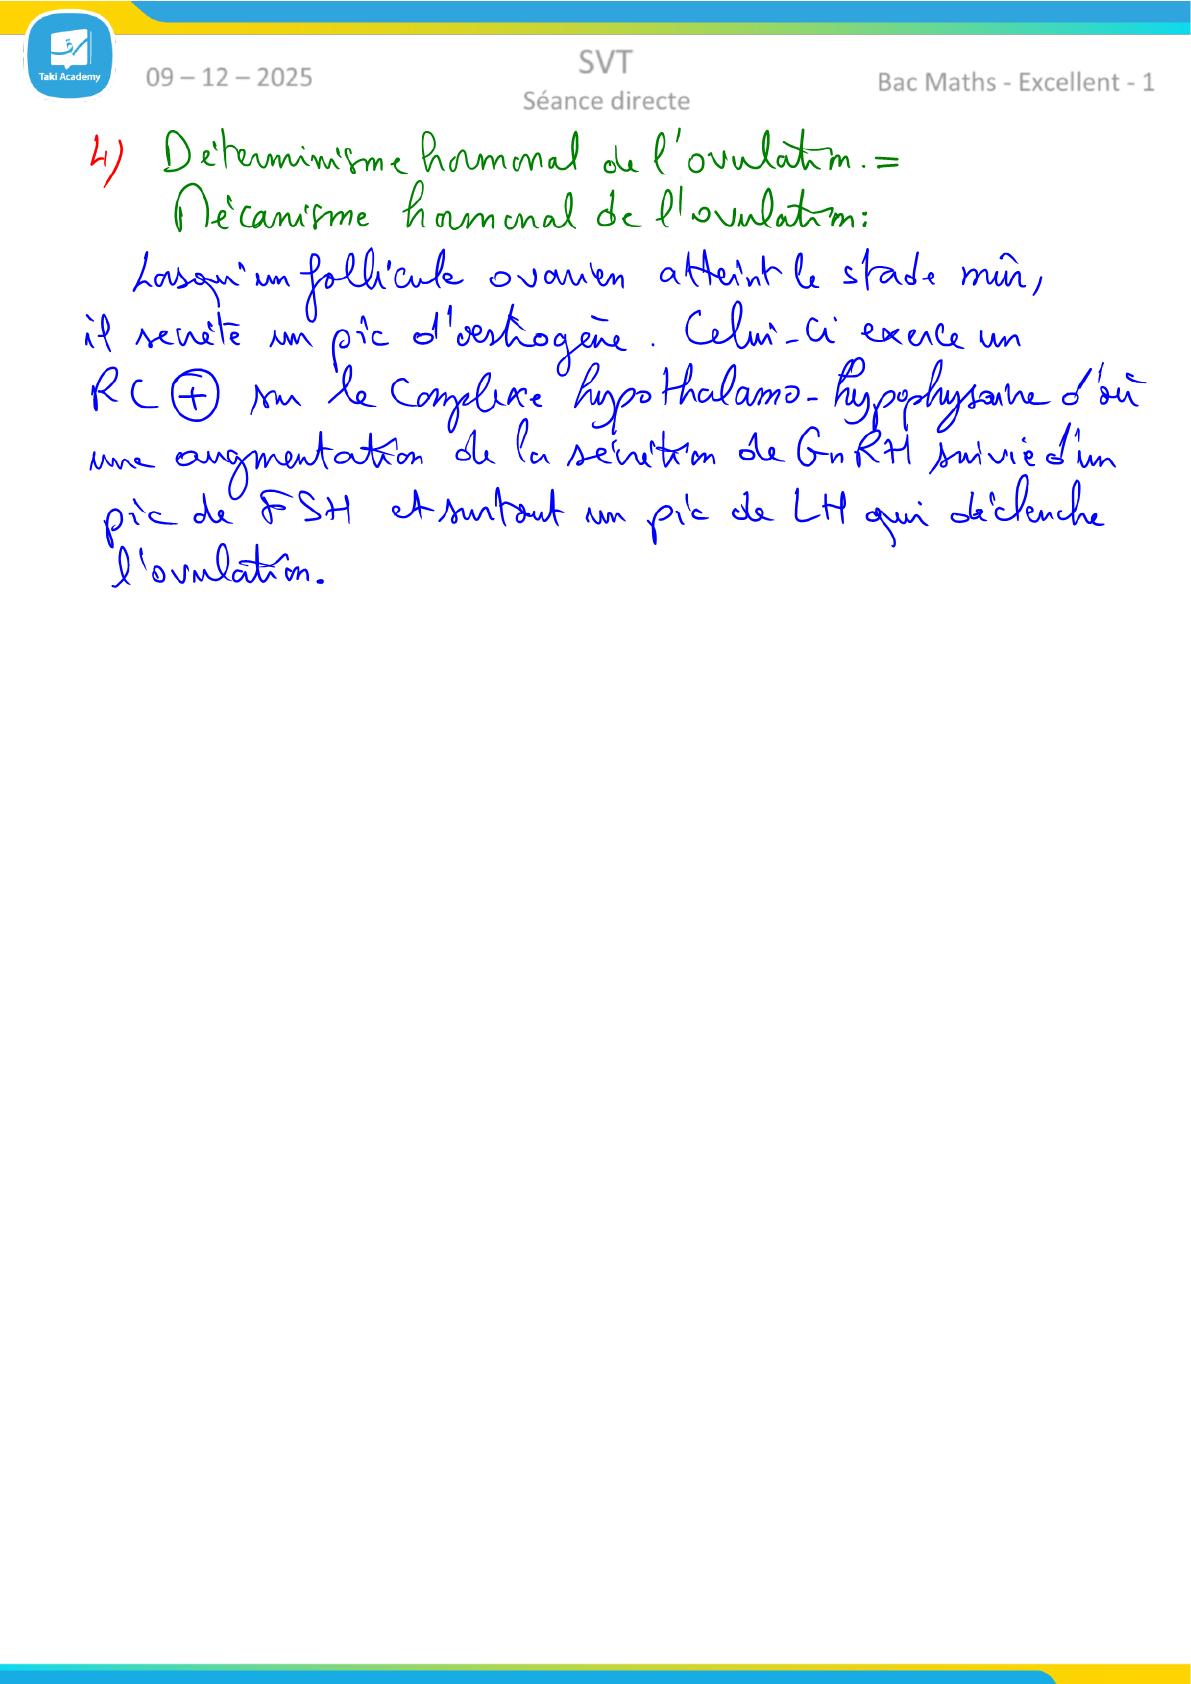 Taki Academy
09 – 12 – 2025
SVT
Séance directe
Bac Maths - Excellent - 1
4) Déterminisme hormonal de l'ovulation. =
Mécanisme hormonal de l'ovulation:
Lorsqu'un follicule ovarien atteint le stade mûr,
il secrète un pic d'œstrogène. Celui-ci exerce un
RC ⊕ sur le complexe hypothalamo-hypophysaire d'où
une augmentation de la sécrétion de GnRH suivie d'un
pic de FSH et surtout un pic de LH qui déclenche
l'ovulation.